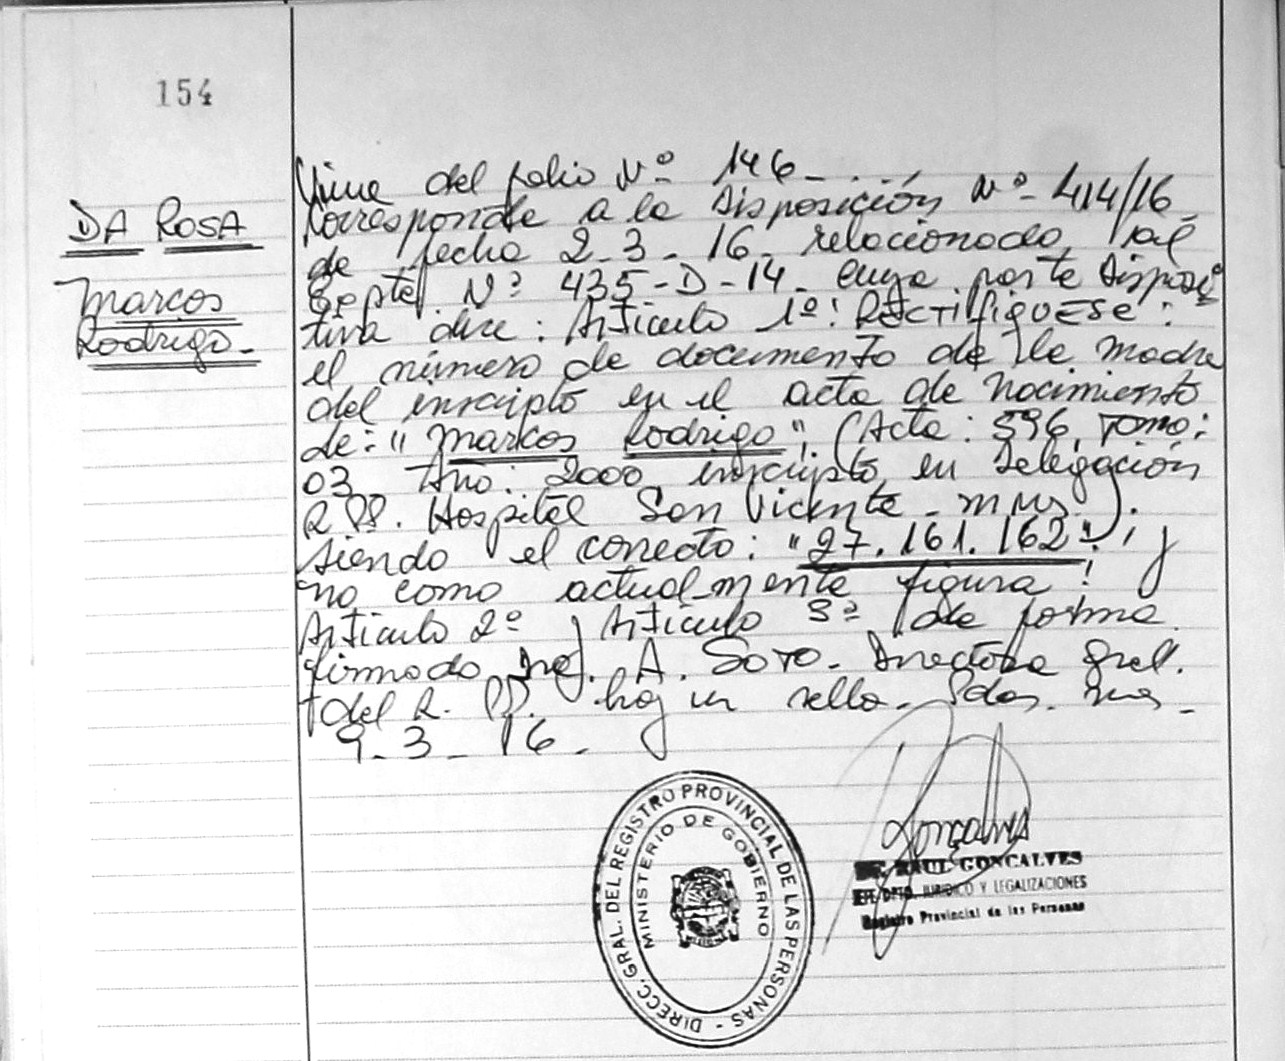 154
DA ROSA
Marcos
Rodrigo.
Viene del folio Nº 146-...
Corresponde a la Disposición Nº 414/16-
de fecha 2-3-16- relacionado al
Expte Nº 435-D-14- cuya parte disposi
tiva dice: Artículo 1º: RECTIFIQUESE:
el número de documento de la madre
del inscripto en el acta de nacimiento
de: "Marcos Rodrigo", (Acta: 396, Tomo:
03, Año: 2000, inscripto en Delegación
R.PP. Hospital San Vicente - Mns.).
siendo el correcto: "27.161.162", y
no como actualmente figura!
Artículo 2º y Artículo 3º de forma.
firmado A. SOTO- Directora Gral.
del R. PP. hay un sello- Pdas. Mns-
9-3-16-
DIRECC. GRAL. DEL REGISTRO PROVINCIAL DE LAS PERSONAS -
MINISTERIO DE GOBIERNO
Goncalves
RAUL GONCALVES
JEFE DPTO. JURIDICO Y LEGALIZACIONES
Registro Provincial de las Personas